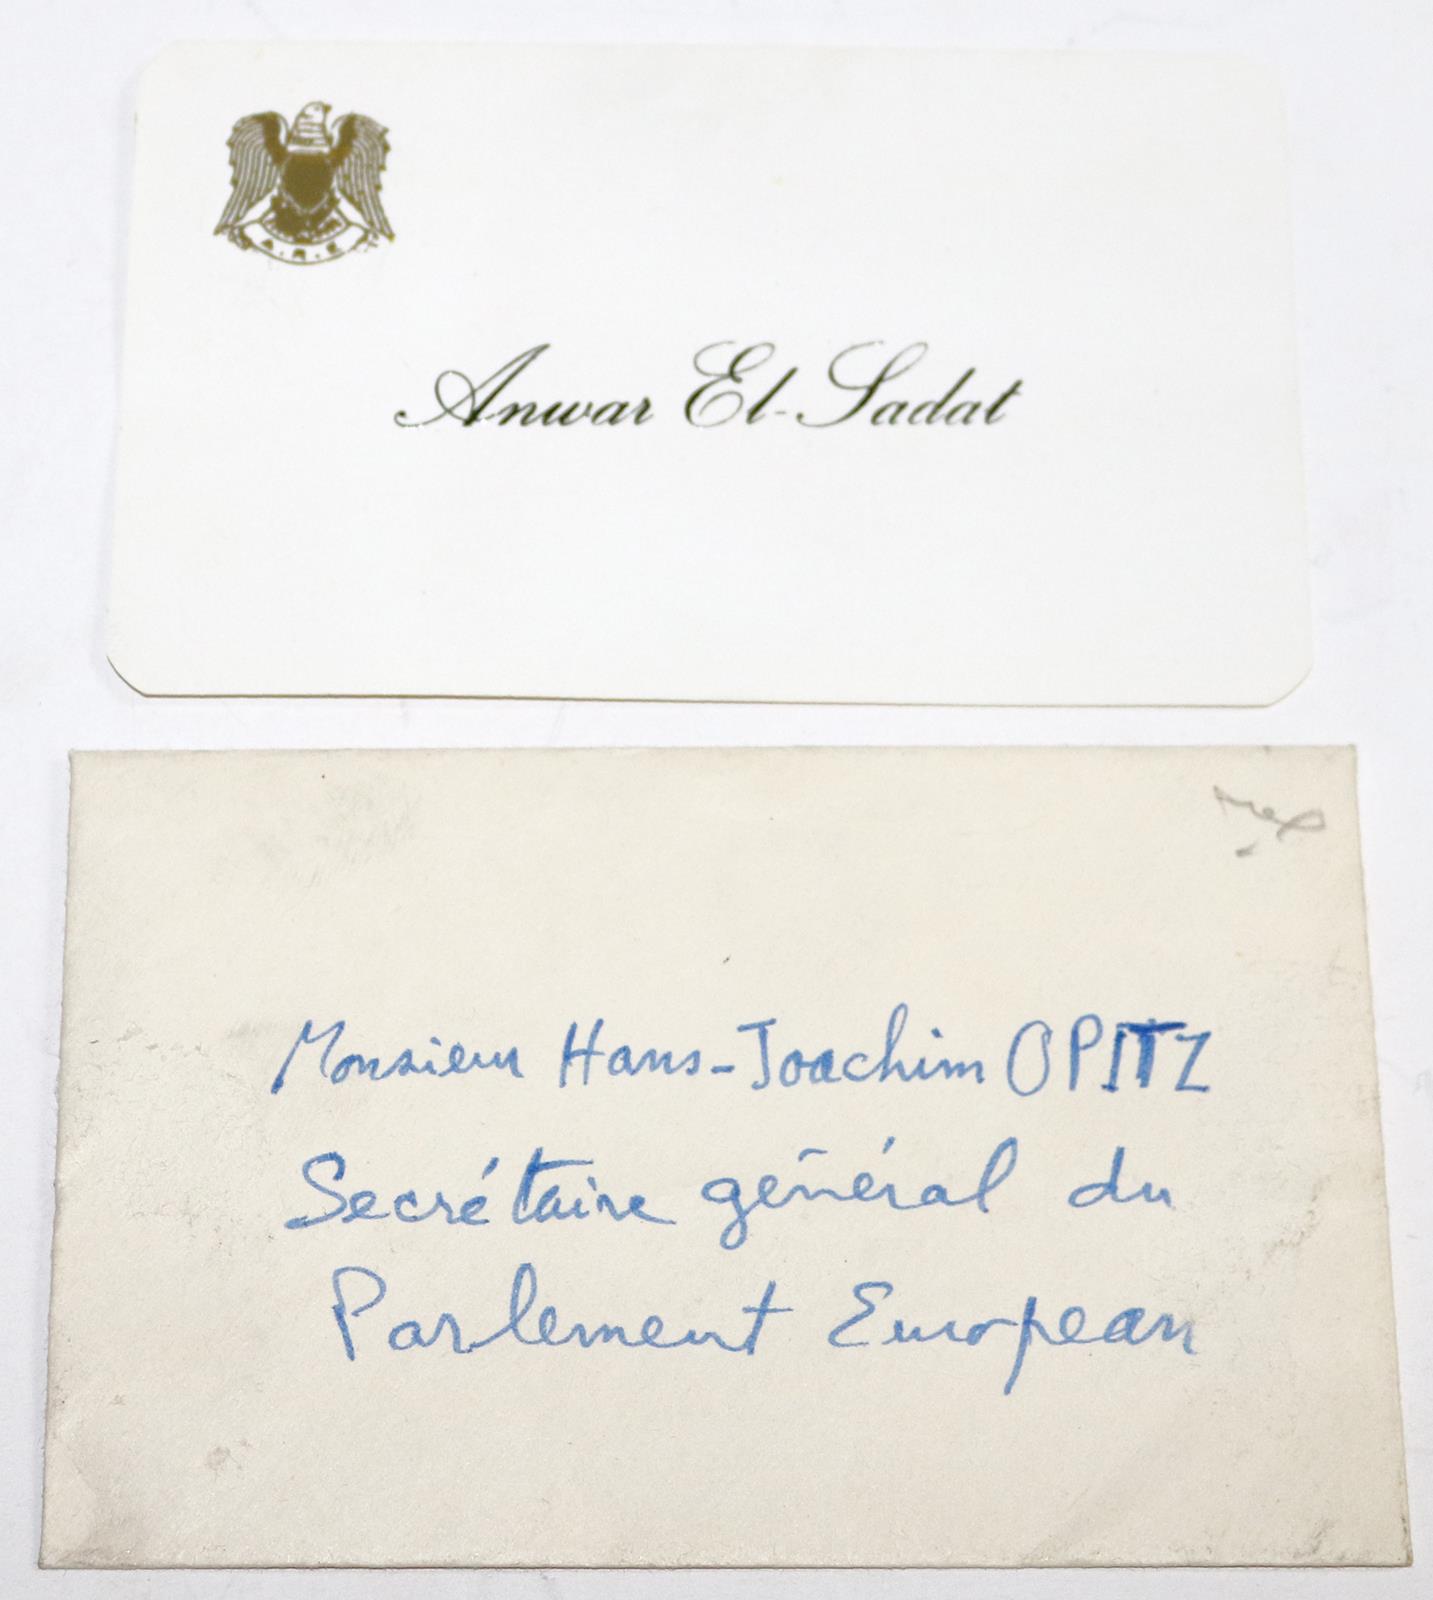 A.R.E
Anwar El-Sadat
Monsieur Hans-Joachim OPITZ
Secrétaire général du
Parlement Européan